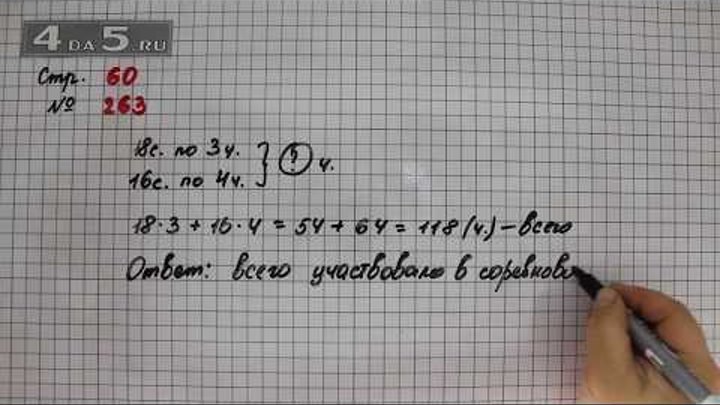 4 DA 5.RU
Стр. 60
№ 263
18с. по 3ч.
16с. по 4ч. } ? ч.
18·3 + 16·4 = 54 + 64 = 118 (ч.) – всего
Ответ: всего участвовало в соревнова